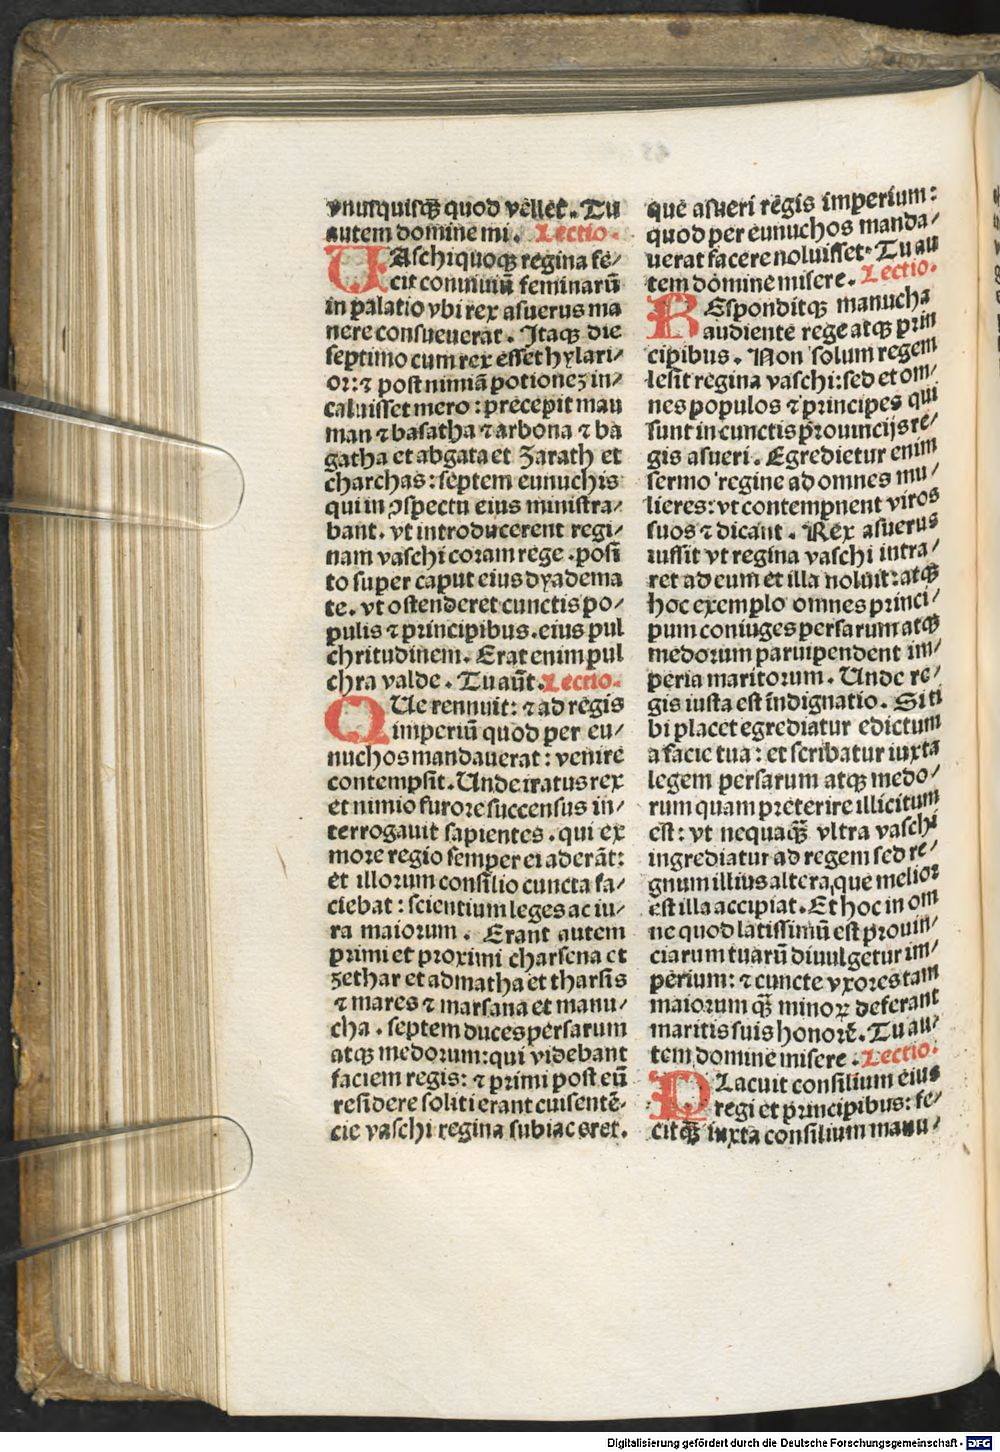 vnusquisqꝫ quod vellet. Tu
autem domine mi. Lectio.
VAschi quoqꝫ regina fe⸗
cit conuiuiū feminarū
in palatio vbi rex asuerus ma
nere consueuerat. Itaqꝫ die
septimo cum rex esset hylari⸗
or: ⁊ post nimiā potionez in⸗
caluisset mero: precepit mau
man ⁊ basatha ⁊ arbona ⁊ ba
gatha et abgata et Zarath et
charchas: septem eunuchis
qui in ꝯspectu eius ministra⸗
bant. vt introducerent regi⸗
nam vaschi coram rege. posi
to super caput eius dyadema
te. vt ostenderet cunctis po⸗
pulis ⁊ principibus. eius pul
chritudinem. Erat enim pul
chra valde. Tu aūt. Lectio.
QUe rennuit: ⁊ ad regis
imperiū quod per eu⸗
nuchos mandauerat: venire
contempsit. Unde iratus rex
et nimio furore succensus in⸗
terrogauit sapientes. qui ex
more regio semper ei aderāt:
et illorum consilio cuncta fa⸗
ciebat: scientium leges ac iu⸗
ra maiorum. Erant autem
primi et proximi charsena et
zethar et admatha et tharsis
⁊ mares ⁊ marsana et manu⸗
cha. septem duces persarum
atqꝫ medorum: qui videbant
faciem regis: ⁊ primi post eū
residere soliti erant cui sentē⸗
cie vaschi regina subiaceret.
que asueri regis imperium:
quod per eunuchos manda⸗
uerat facere noluisset. Tu au
tem domine misere. Lectio.
REsponditqꝫ manucha
audiente rege atqꝫ prin
cipibus. Non solum regem
lesit regina vaschi: sed et om⸗
nes populos ⁊ principes qui
sunt in cunctis prouincijs re⸗
gis asueri. Egredietur enim
sermo regine ad omnes mu⸗
lieres: vt contempnent viros
suos ⁊ dicant. Rex asuerus
iussit vt regina vaschi intra⸗
ret ad eum et illa noluit: atqꝫ
hoc exemplo omnes princi⸗
pum coniuges persarum atqꝫ
medorum paruipendent im⸗
peria maritorum. Unde re⸗
gis iusta est indignatio. Si ti
bi placet egrediatur edictum
a facie tua: et scribatur iuxta
legem persarum atqꝫ medo⸗
rum quam preterire illicitum
est: vt nequaqꝫ̄ vltra vaschi
ingrediatur ad regem sed re⸗
gnum illius altera, que melior
est illa accipiat. Et hoc in om
ne quod latissimū est prouin⸗
ciarum tuarū diuulgetur im⸗
perium: ⁊ cuncte vxores tam
maiorum qꝫ̄ minoꝝ deferant
maritis suis honorē. Tu au⸗
tem domine misere. Lectio.
PLacuit consilium eius
regi et principibus: fe⸗
citqꝫ iuxta consilium manu⸗
Digitalisierung gefördert durch die Deutsche Forschungsgemeinschaft - DFG